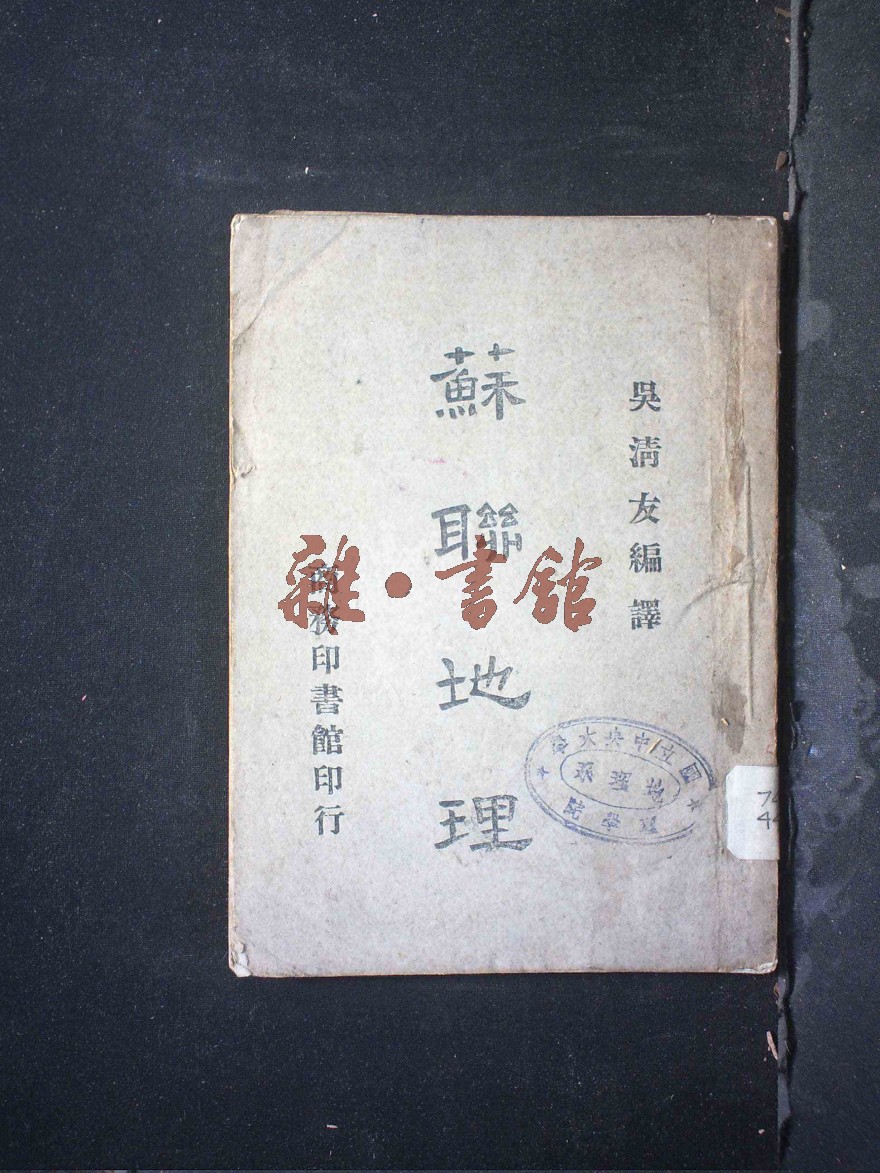 吳清友編譯
蘇聯地理
商務印書館印行
雜·書館
國立中央大學